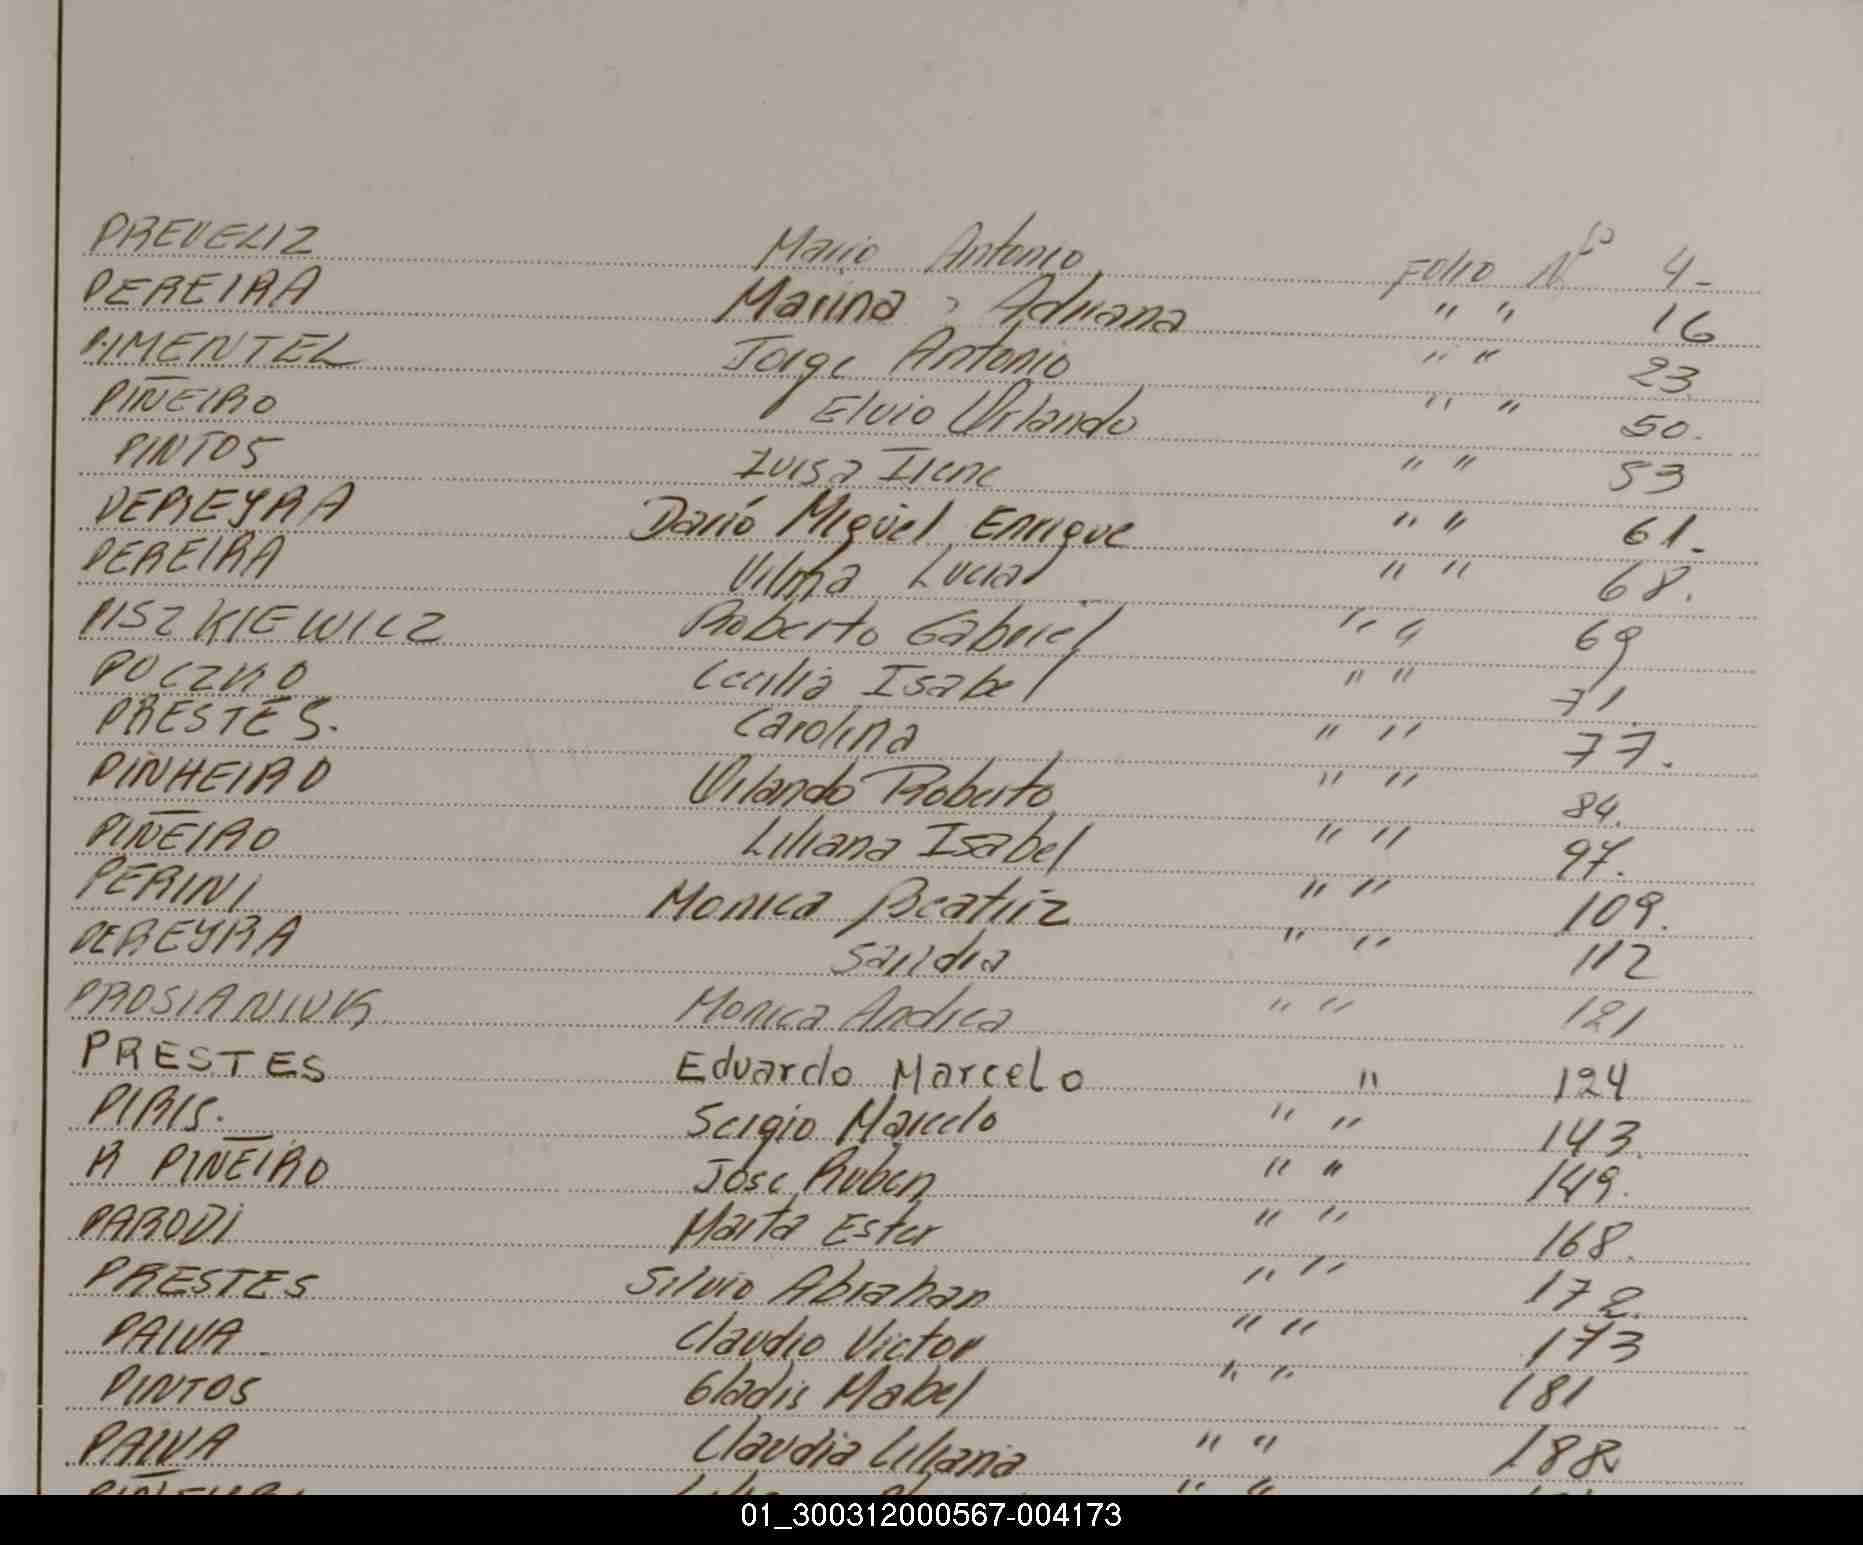 PREVELIZ Mario Antonio Folio Nº 4-
PEREIRA Marina , Adriana " " 16
PIMENTEL Jorge Antonio " " 23.
PIÑEIRO Elvio Orlando " " 50.
PINTOS Luisa Irene " " 53
PEREYRA Darió Miguel Enrique " " 61.
PEREIRA Vilma Lucia " " 68.
PISZKIEWICZ Roberto Gabriel " " 69
POCZKO Cecilia Isabel " " 71
PRESTES. Carolina " " 77.
PINHEIRO Orlando Roberto " " 84.
PIÑEIRO Liliana Isabel " " 97.
PERINI Monica Beatriz " " 109.
PEREYRA Sandra " " 112
PROSIANIUK Monica Andrea " " 121
PRESTES Eduardo Marcelo " 124
PIRIS. Sergio Marcelo " " 143.
R PIÑEIRO Jose Ruben " " 149.
PARODI Marta Ester " " 168.
PRESTES Silvio Abrahan " " 172.
PAIVA Claudio Victor " " 173
PINTOS Gladis Mabel " " 181
PAIVA Claudia Liliana " " 188.
01_300312000567-004173